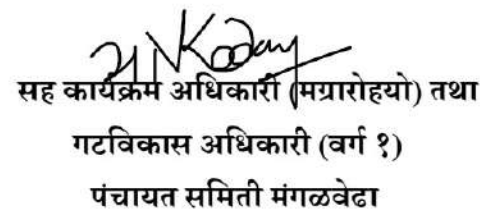 सह कार्यक्रम अधिकारी (मग्रारोहयो) तथा
गटविकास अधिकारी (वर्ग १)
पंचायत समिती मंगळवेढा